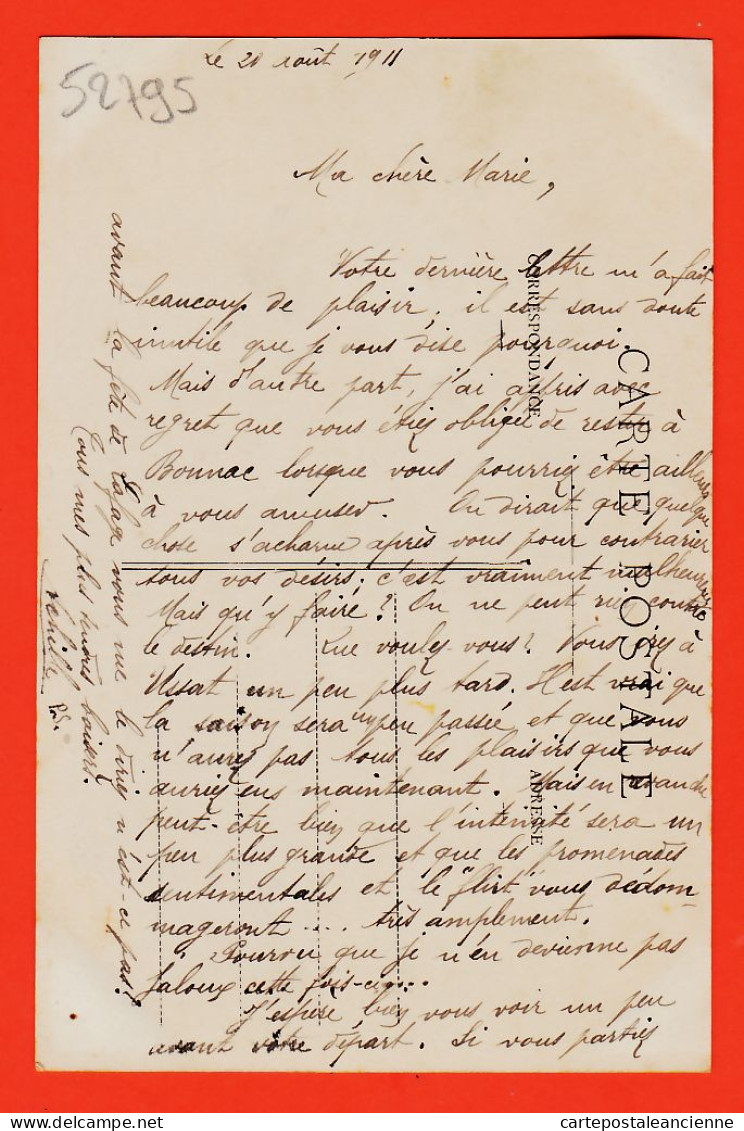 52795
Le 20 août 1911
Ma chère Marie,
Votre dernière lettre m'a fait
beaucoup de plaisir, il est sans doute
inutile que je vous dise pourquoi.
Mais d'autre part, j'ai appris avec
regret que vous étiez obligée de rester à
Bonnac lorsque vous pourriez être ailleurs
à vous amuser. On dirait que quelque
chose s'acharne après vous pour contrarier
tous vos désirs; c'est vraiment malheureux
Mais qu'y faire? On ne peut rien contre
le destin. Que voulez-vous? Vous irez à
Ussat un peu plus tard. Il est vrai que
la saison sera un peu passée et que vous
n'aurez pas tous les plaisirs que vous
auriez eus maintenant. Mais en revanche
peut-être bien que l'intensité sera un
peu plus grande et que les promenades
sentimentales et le "flirt" vous dédom-
mageront .... très amplement.
Pourvu que je n'en devienne pas
jaloux cette fois-ci....
J'espère bien vous voir un peu
avant votre départ. Si vous partiez
avant la fête de Lafage vous me le direz n'est-ce pas?
Tous mes plus tendres baisers.
CARTE POSTALE
CORRESPONDANCE
ADRESSE
cartepostaleancienne
cartepostaleancienne